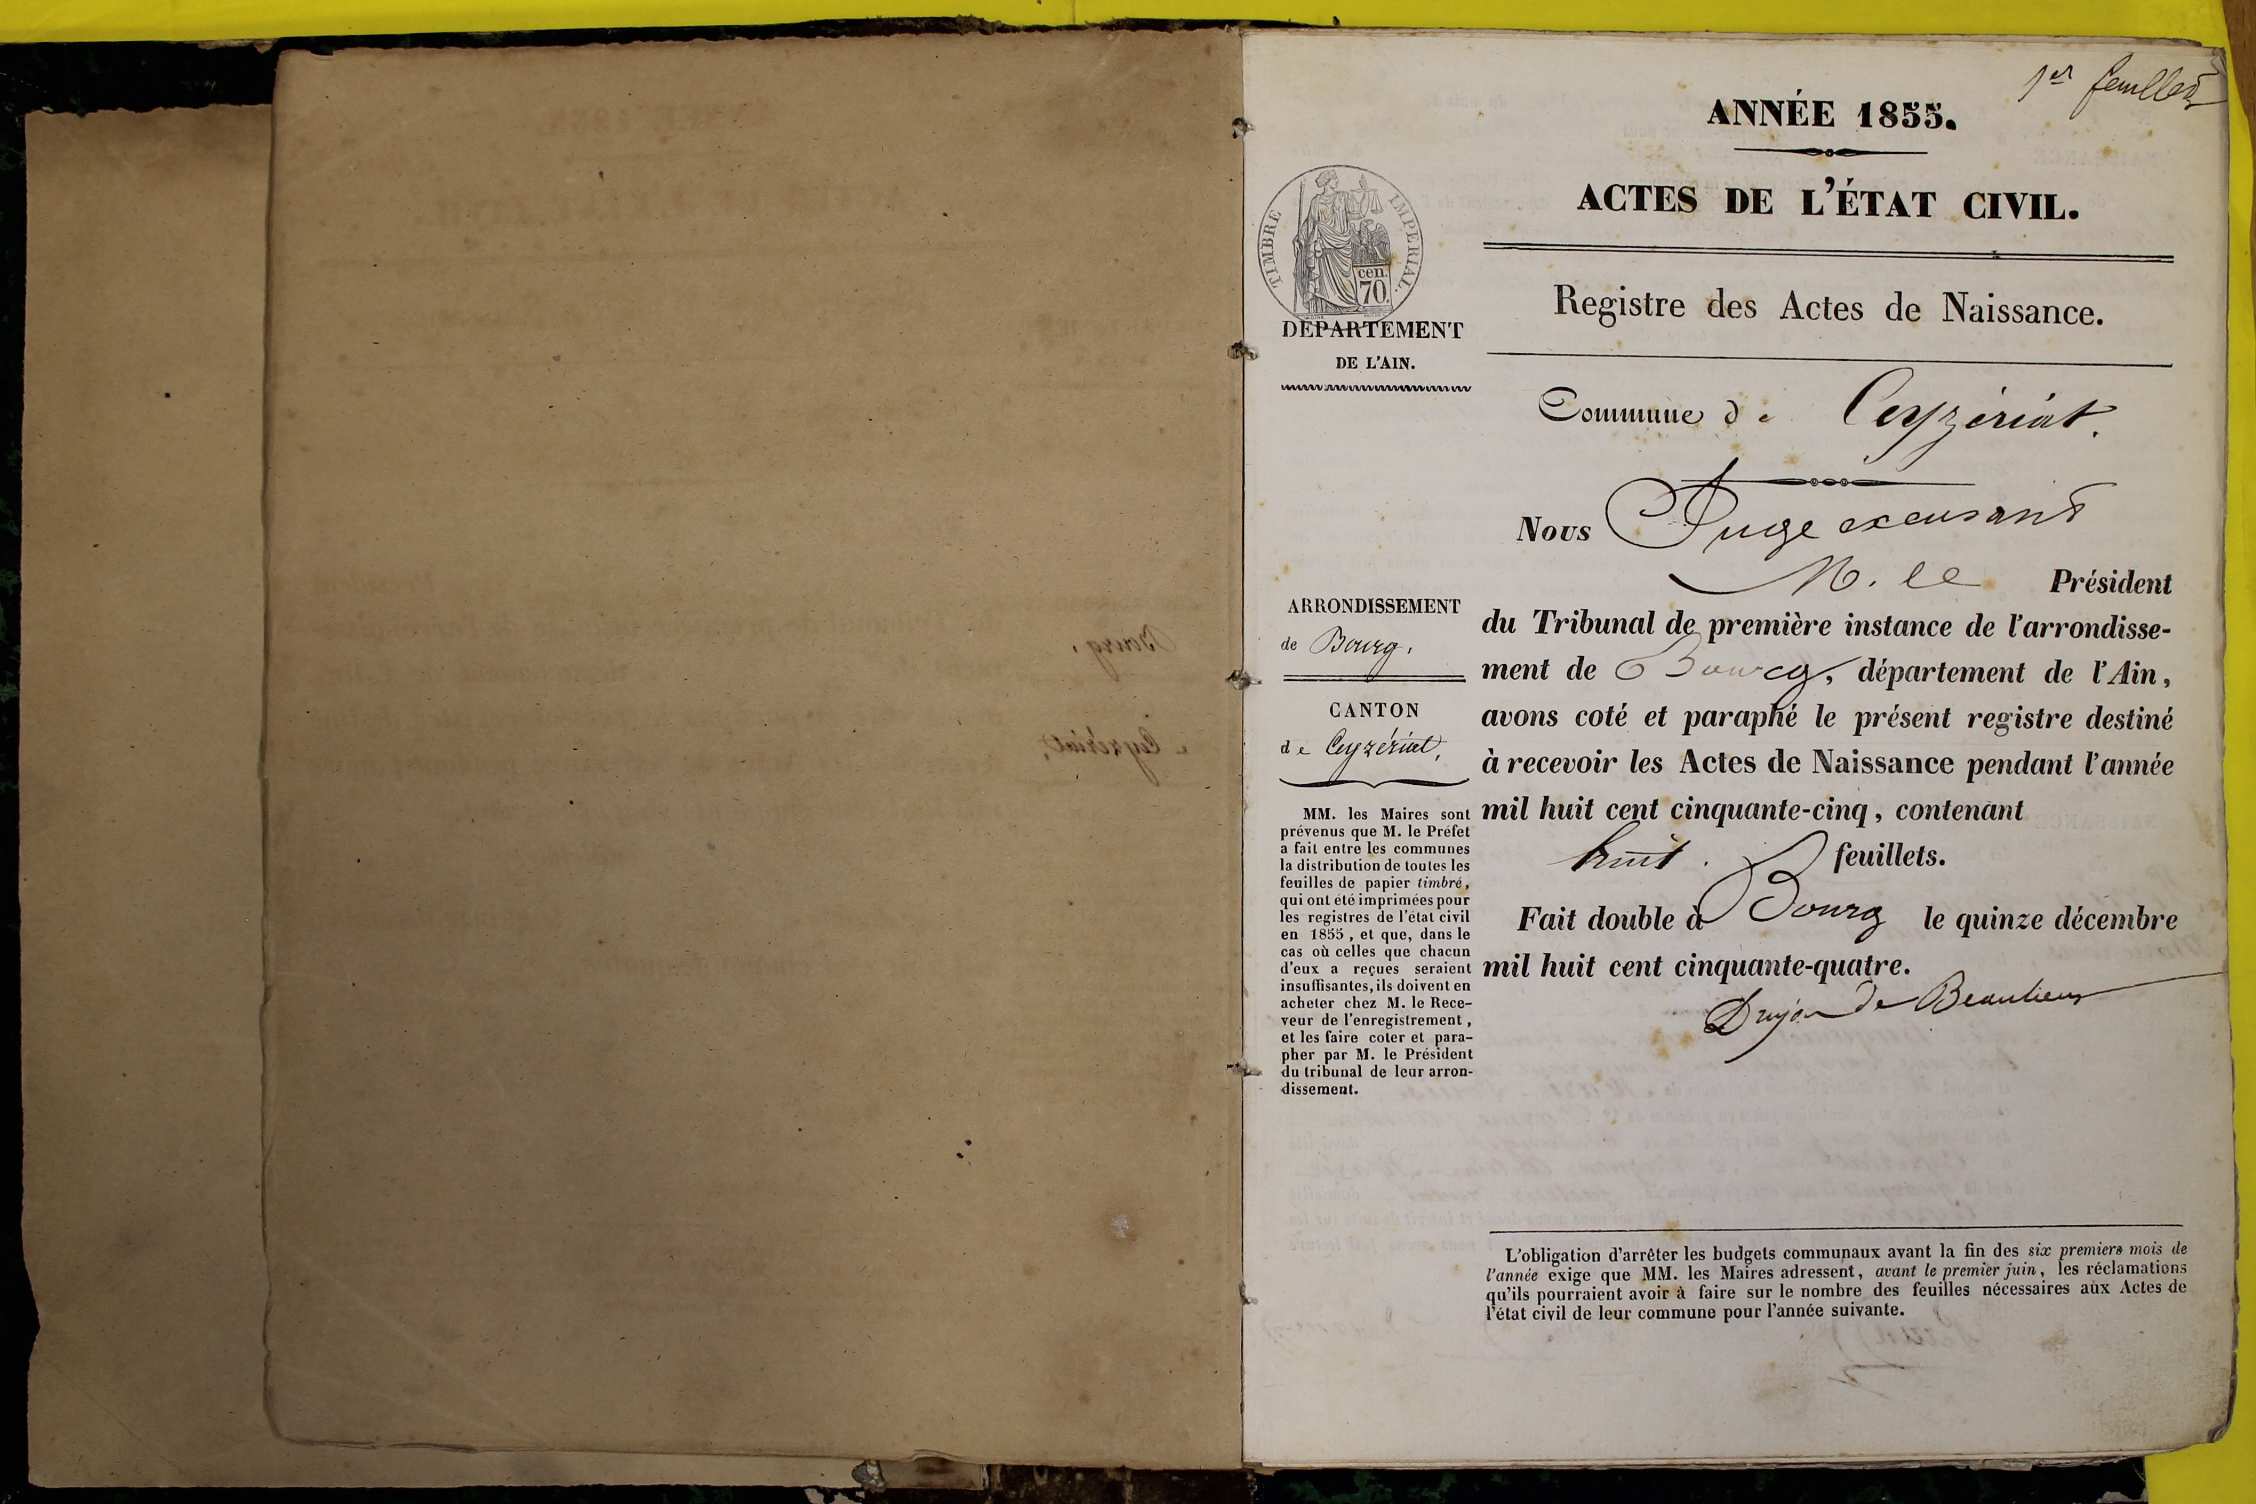 1er feuillet
ANNÉE 1855.
ACTES DE L'ÉTAT CIVIL.
TIMBRE IMPERIAL.
cen.
70.
Registre des Actes de Naissance.
DEPARTEMENT
DE L'AIN.
Commune de Ceyzériat.
Nous Juge excusant
M. le Président
du Tribunal de première instance de l'arrondisse-
ment de Bourg, département de l'Ain,
avons coté et paraphé le présent registre destiné
à recevoir les Actes de Naissance pendant l'année
mil huit cent cinquante-cinq, contenant
huit. feuillets.
Fait double à Bourg le quinze décembre
mil huit cent cinquante-quatre.
Dujon de Beaulieu
ARRONDISSEMENT
de Bourg.
CANTON
de Ceyzériat.
MM. les Maires sont
prévenus que M. le Préfet
a fait entre les communes
la distribution de toutes les
feuilles de papier timbré,
qui ont été imprimées pour
les registres de l'état civil
en 1855, et que, dans le
cas où celles que chacun
d'eux a reçues seraient
insuffisantes, ils doivent en
acheter chez M. le Rece-
veur de l'enregistrement,
et les faire coter et para-
pher par M. le Président
du tribunal de leur arron-
dissement.
L'obligation d'arrêter les budgets communaux avant la fin des six premiers mois de
l'année exige que MM. les Maires adressent, avant le premier juin, les réclamations
qu'ils pourraient avoir à faire sur le nombre des feuilles nécessaires aux Actes de
l'état civil de leur commune pour l'année suivante.